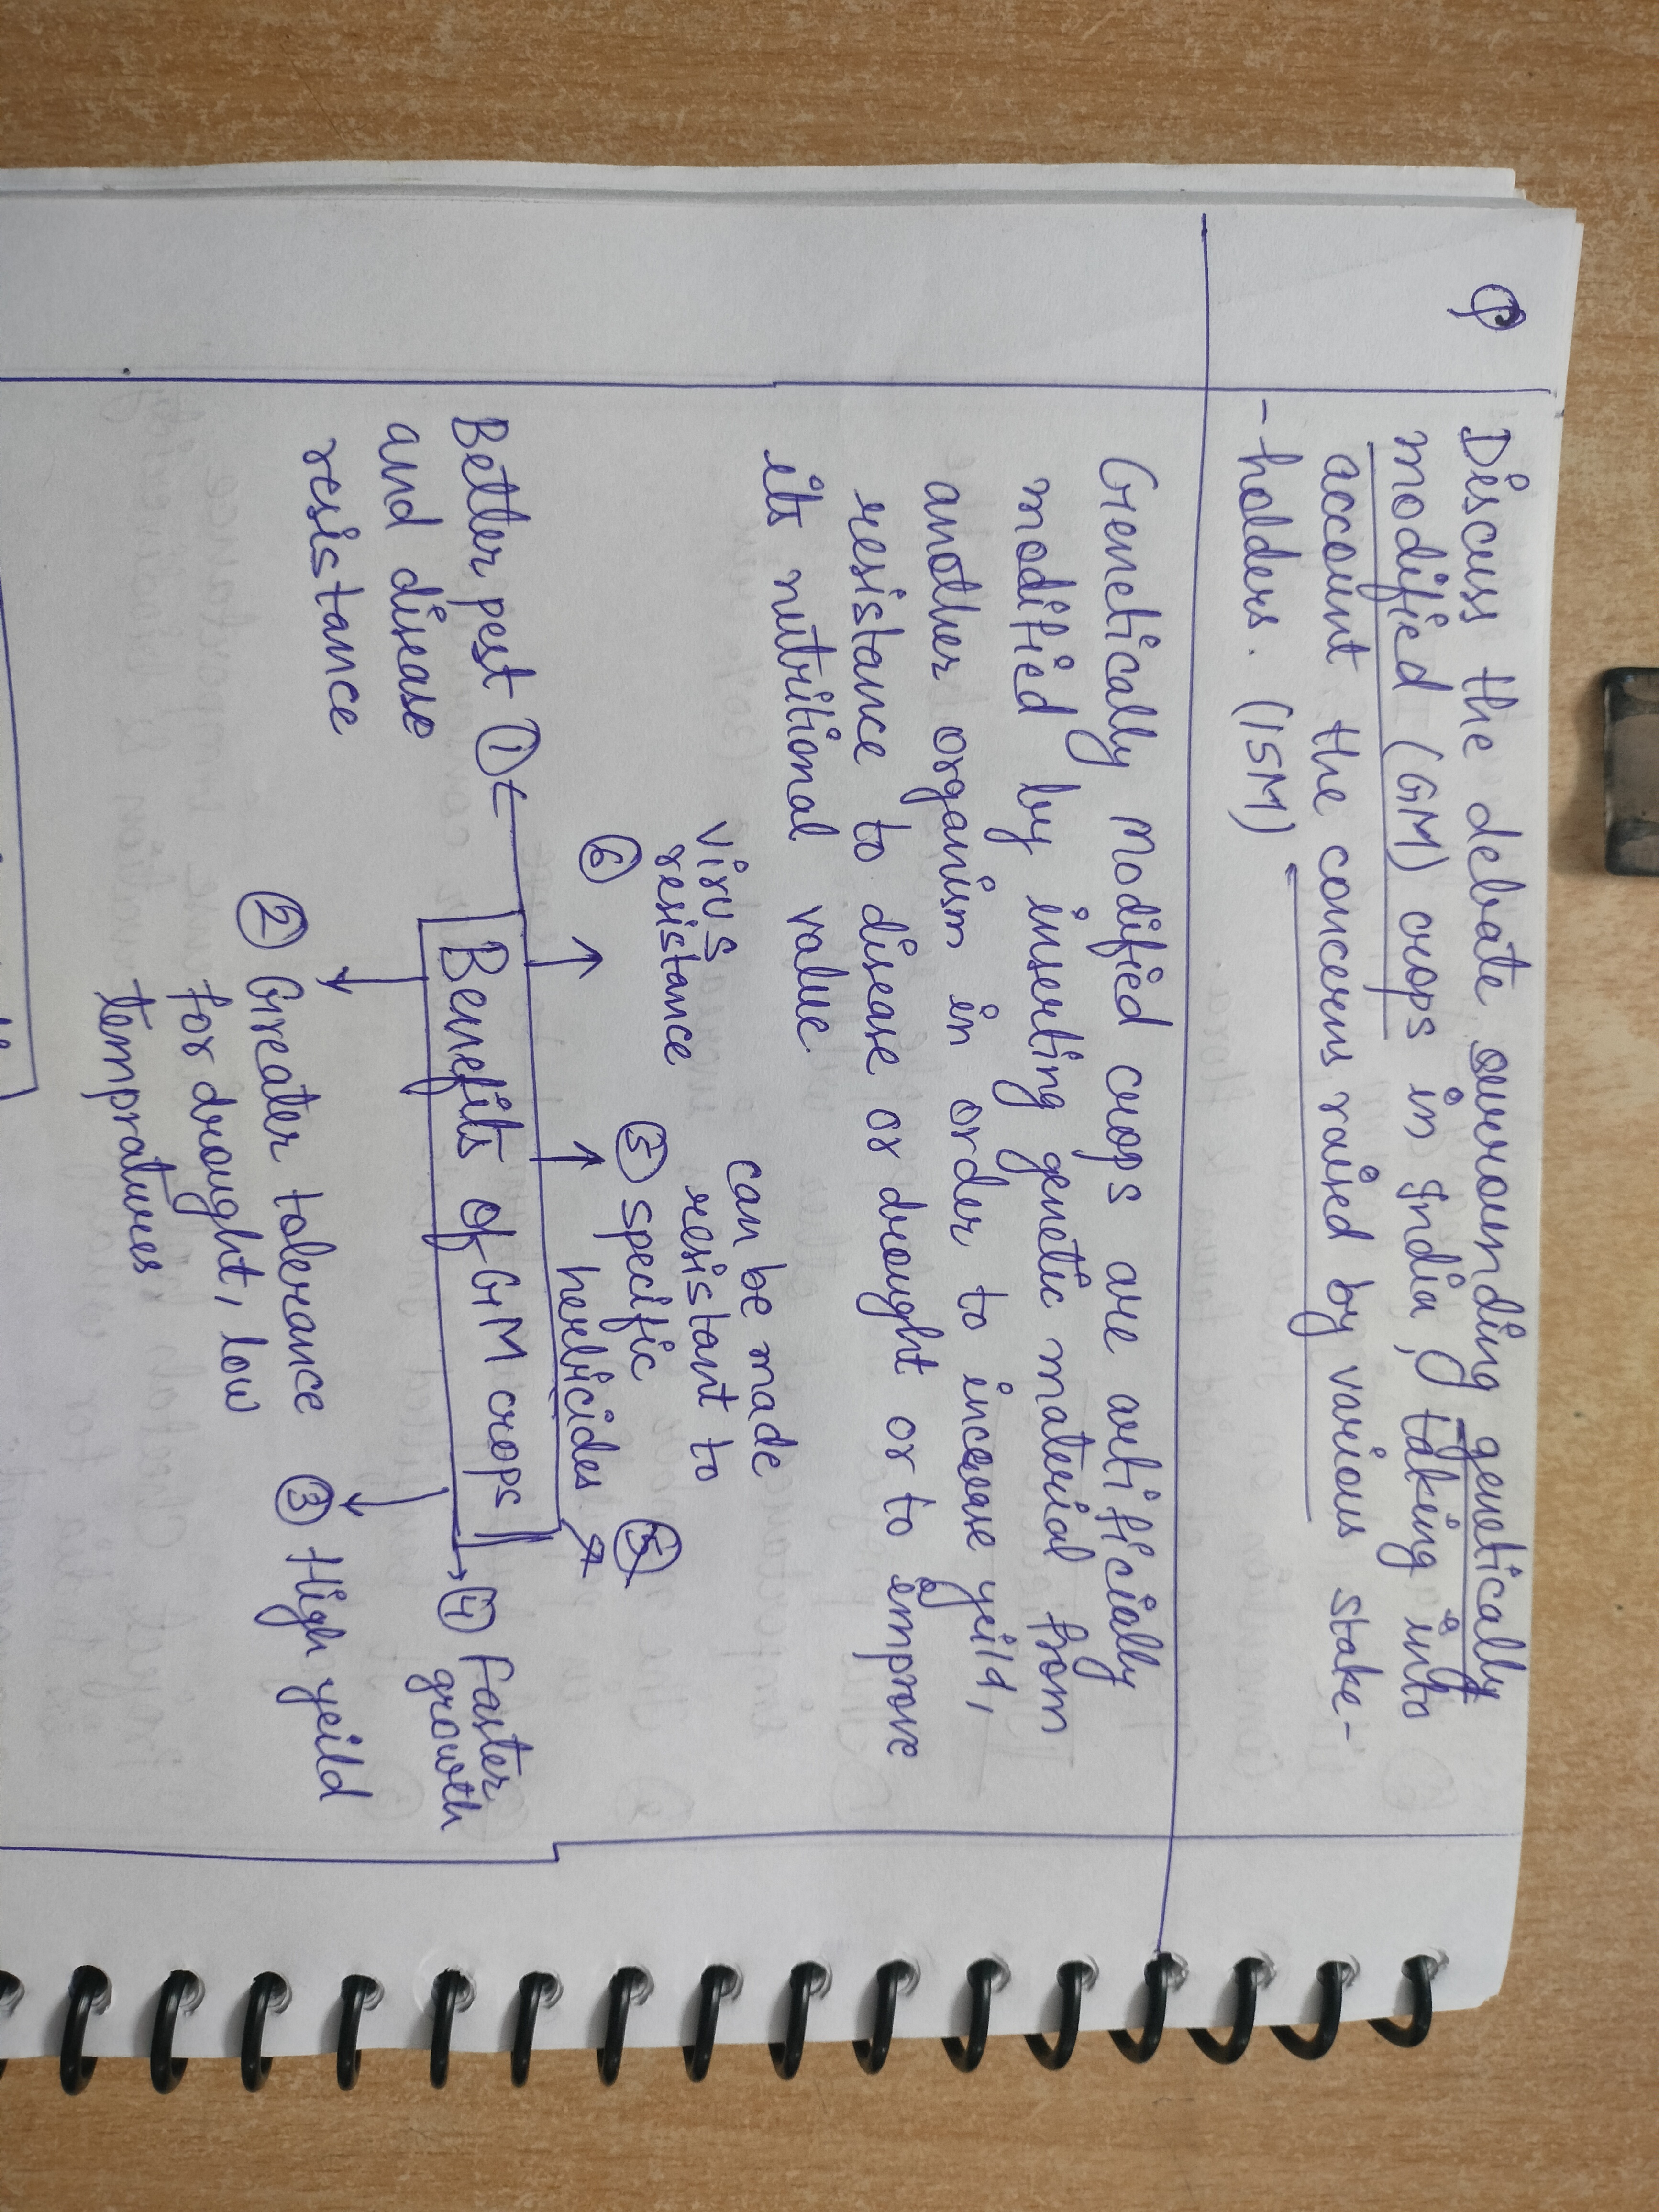 Q
Discuss the debate surrounding genetically
modified (GM) crops in India, taking into
account the concerns raised by various stake-
-holders. (15M)
Genetically Modified crops are artificially
modified by inserting genetic material from
another organism in order to increase yeild,
resistance to disease or drought or to improve
its nutritional value.
virus
resistance
⑥
can be made
resistant to
⑤ specific
herbicides
Better pest ①
and disease
resistance
Benefits of GM crops
④ Faster
growth
② Greater tolerance
for drought, low
tempratures
③ High yeild